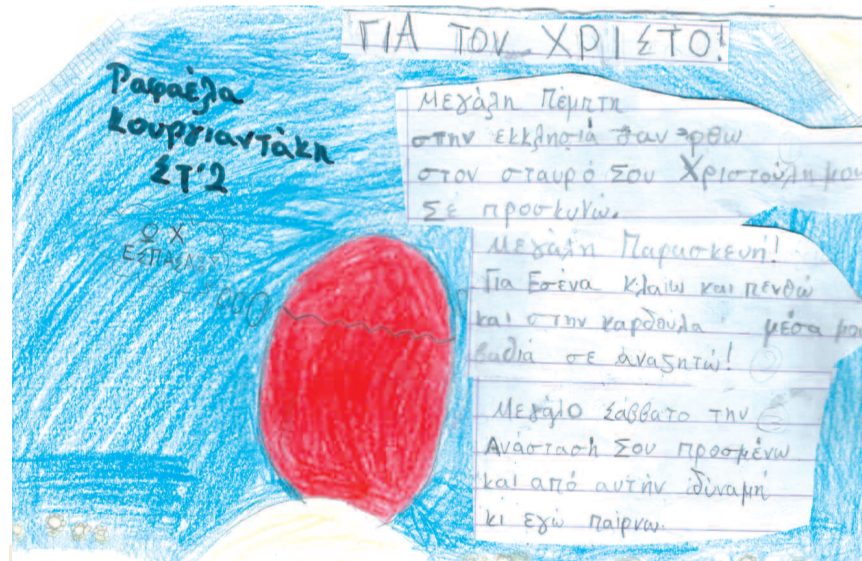 ΓΙΑ ΤΟΝ ΧΡΙΣΤΟ!
Ραφαέλα
Κουργιαντάκη
ΣΤ'2
Μεγάλη Πέμπτη
στην εκκλησιά σαν έρθω
στον σταυρό Σου Χριστούλη μου
Σε προσκυνώ.
Μεγάλη Παρασκευή!
Για Εσένα κλαίω και πενθώ
και στην καρδούλα μέσα μου
βαθιά σε αναζητώ!
Μεγάλο Σάββατο την
Ανάσταση Σου προσμένω
και από αυτήν δύναμη
κι εγώ παίρνω.
Ο Χ